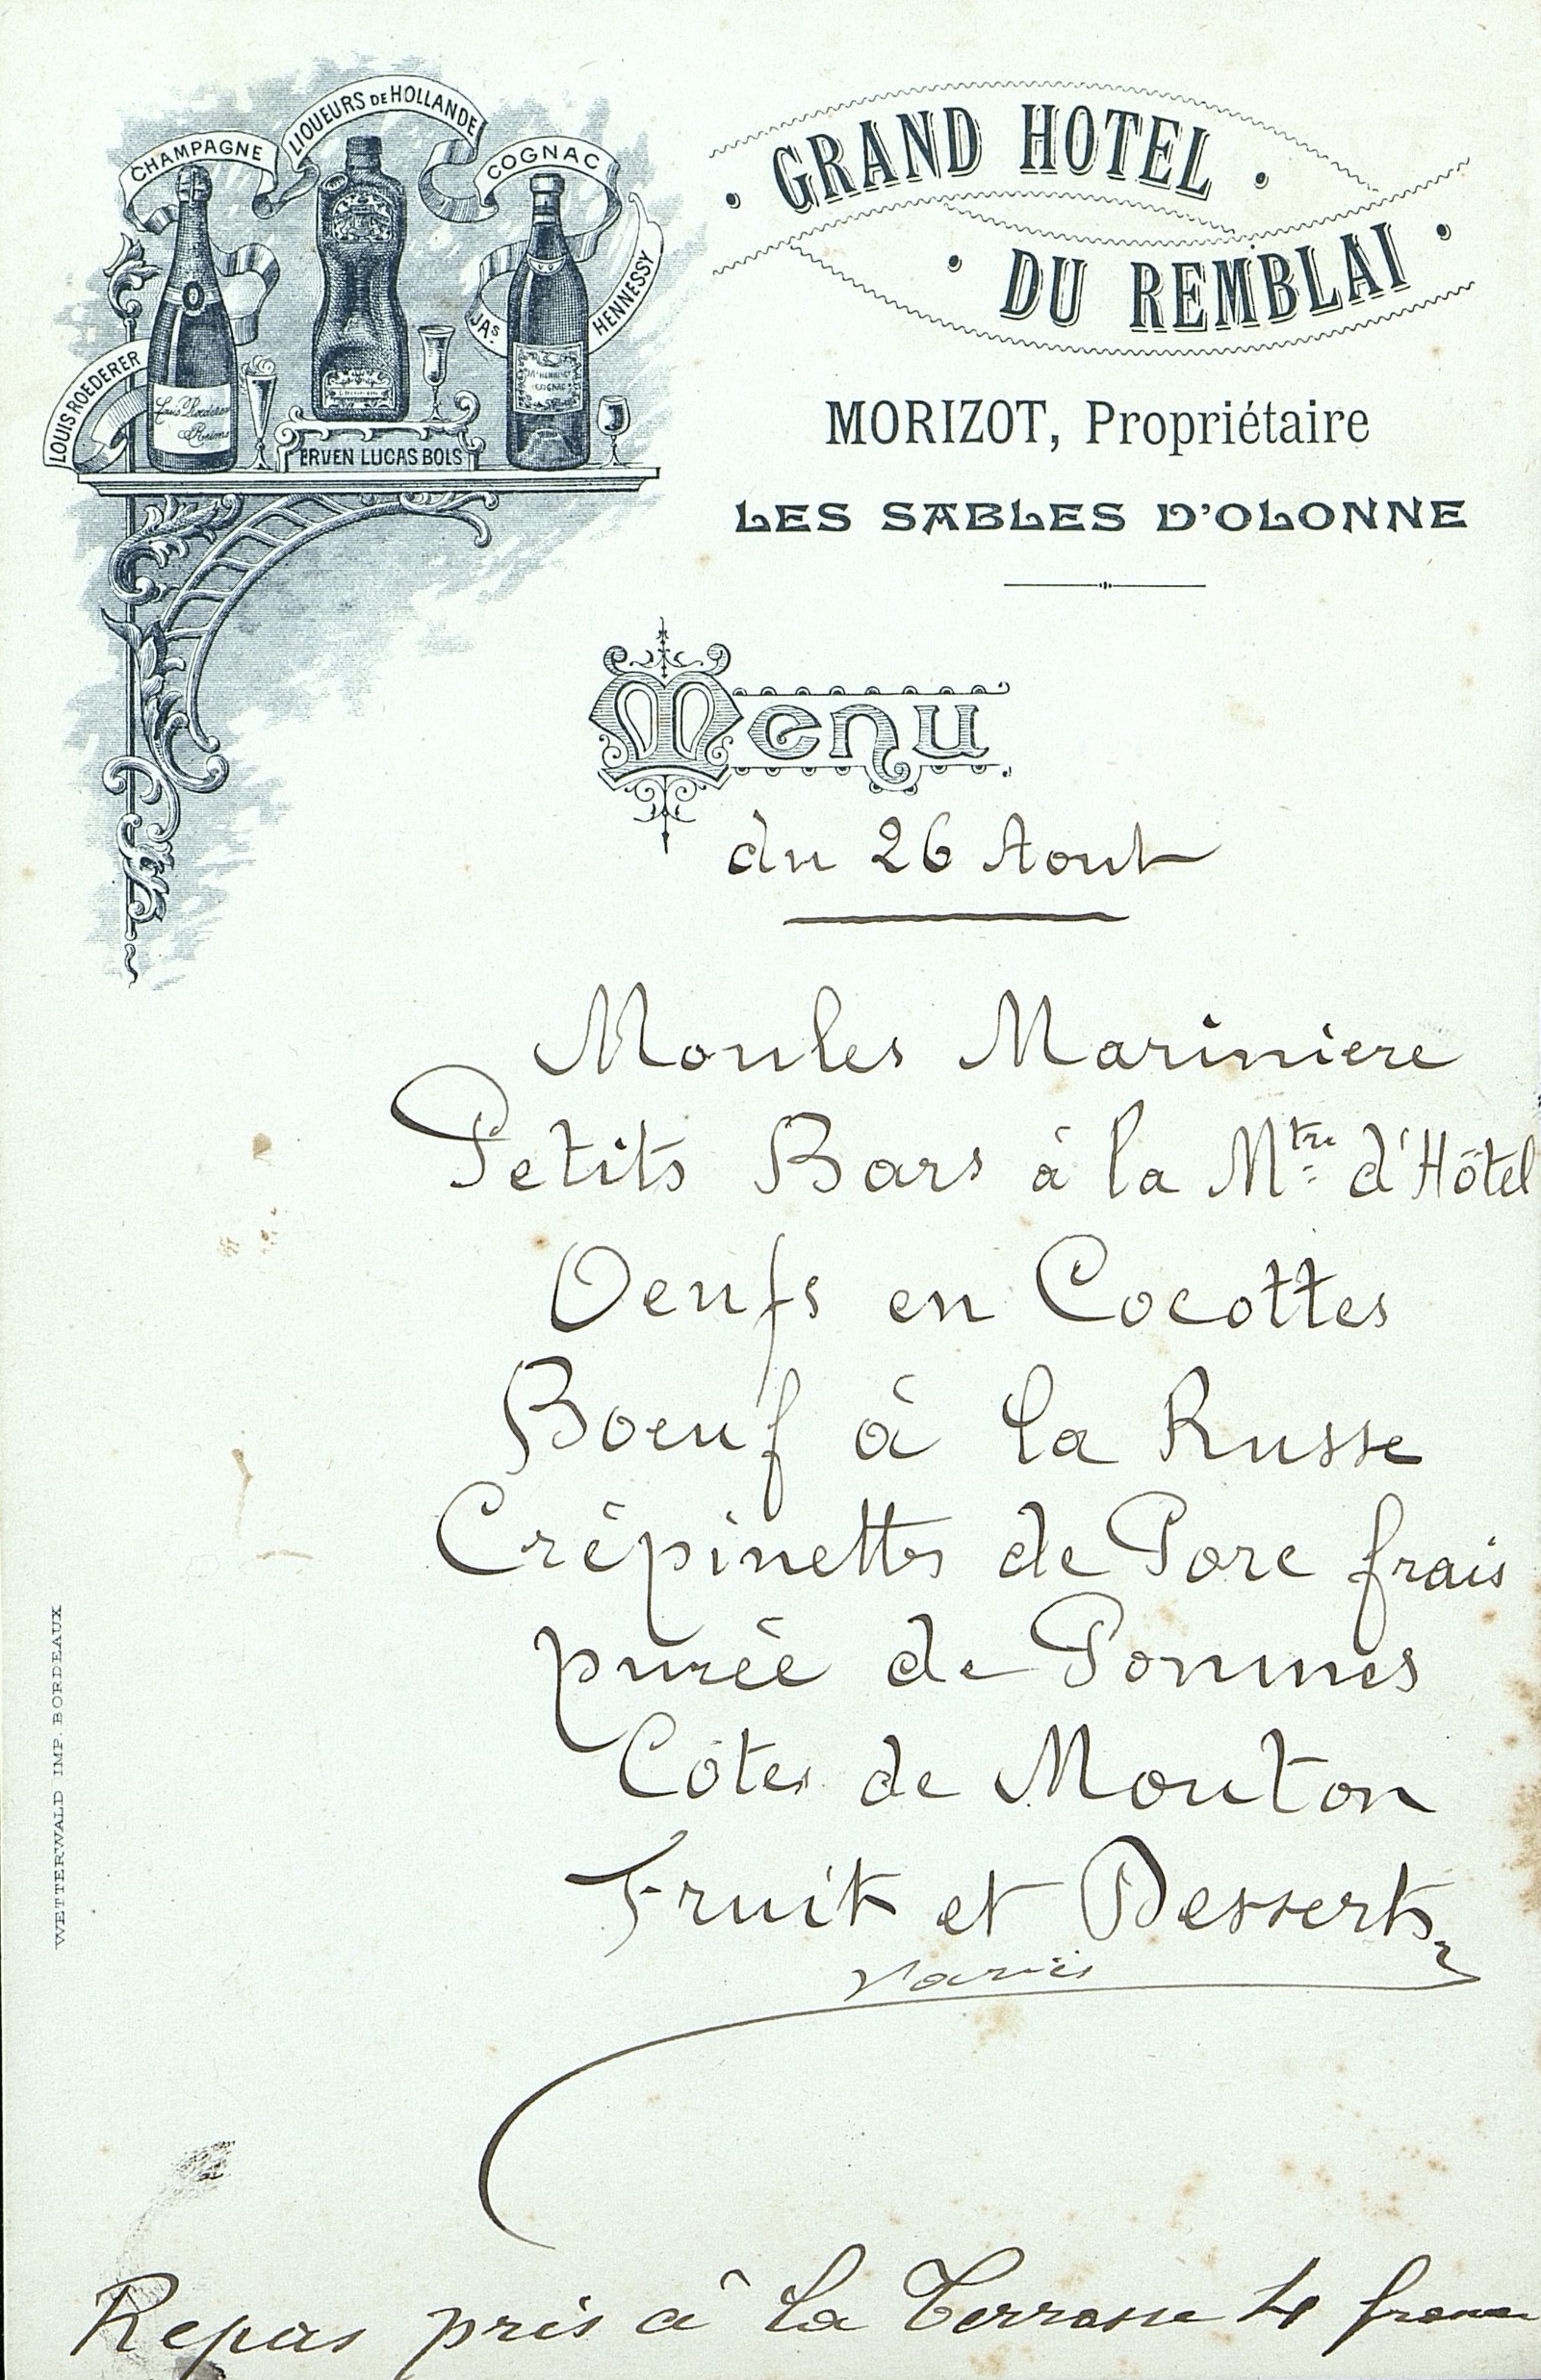 CHAMPAGNE
LIQUEURS DE HOLLANDE
COGNAC
LOUIS ROEDERER
JAS HENNESSY
Louis Roederer
Reims
ERVEN LUCAS BOLS
GRAND HOTEL
DU REMBLAI
MORIZOT, Propriétaire
LES SABLES D'OLONNE
Menu
du 26 Aout
Moules Mariniere
Petits Bars à la Mtre d'Hôtel
Oeufs en Cocottes
Boeuf à la Russe
Crépinettes de Porc frais
purée de Pommes
Côtes de Mouton
Fruits et Desserts
variés
Repas pris à la Terrasse 4 francs
WETTERWALD IMP. BORDEAUX